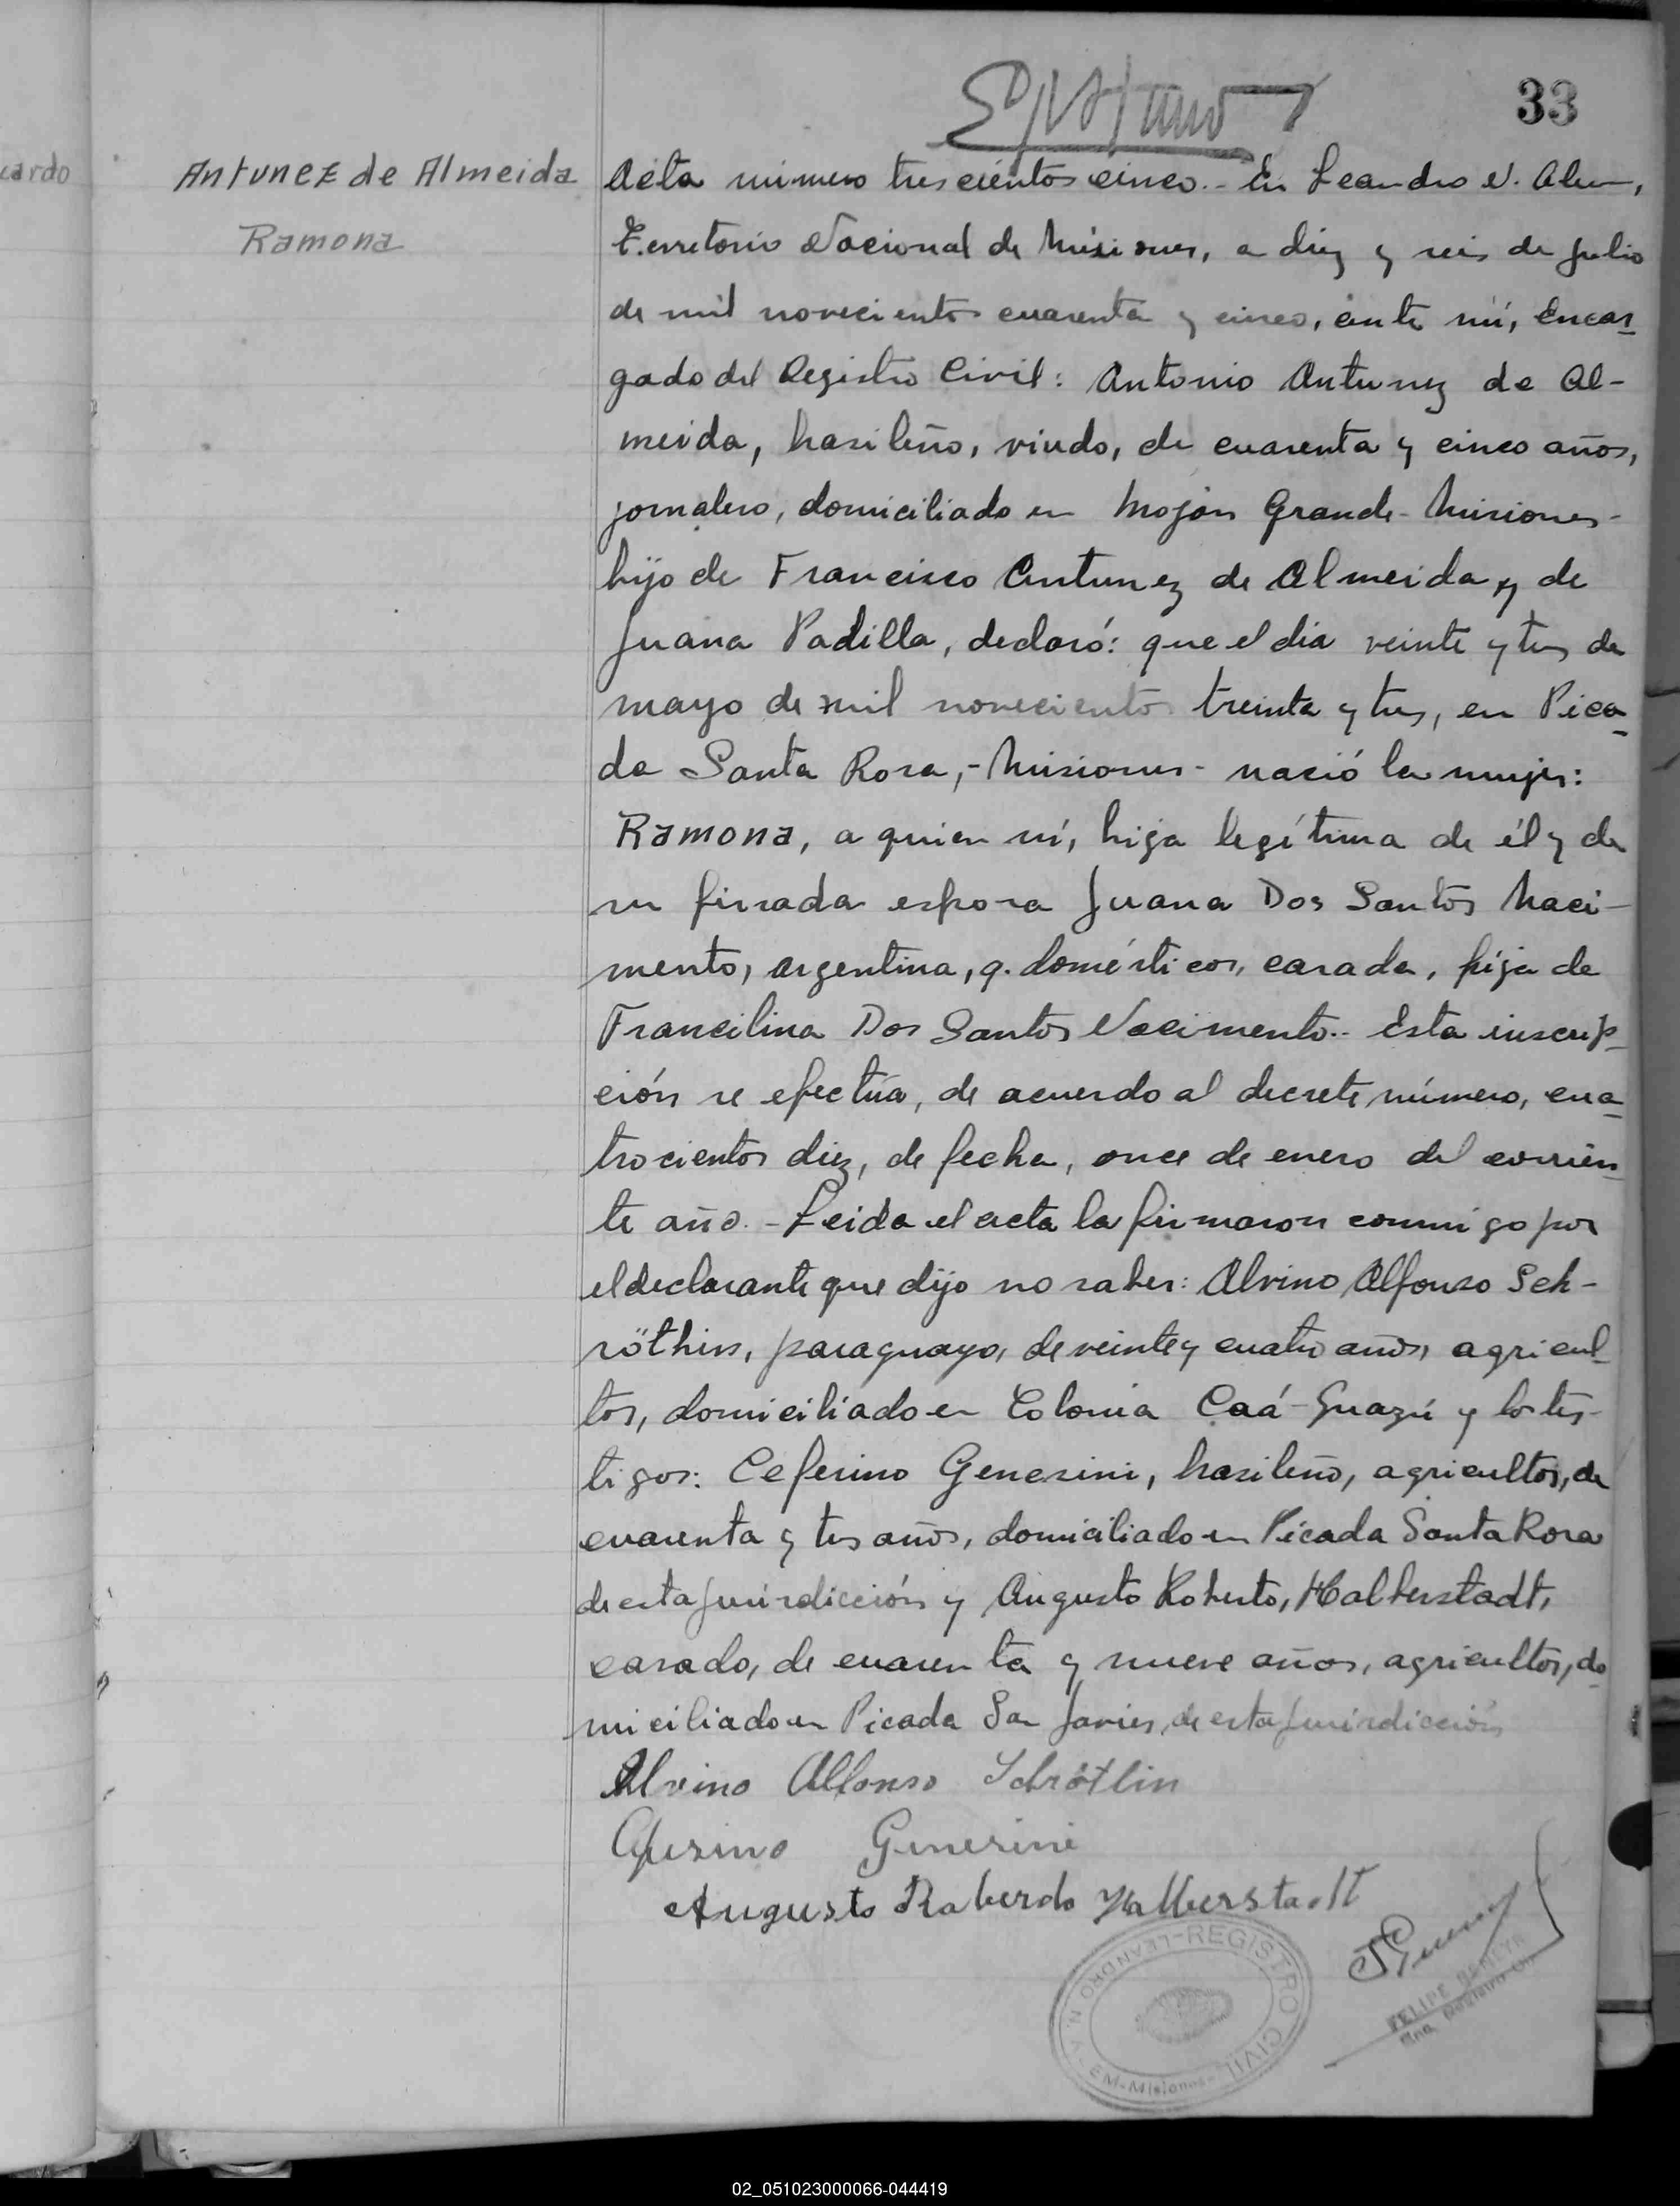 33
cardo
Antunez de Almeida
Ramona
Acta número trescientos cinco.- En Leandro N. Alem,
Territorio Nacional de Misiones, a diez y seis de julio
de mil novecientos cuarenta y cinco, ante mí, Encar-
gado del Registro Civil: Antonio Antunez de Al-
meida, brasileño, viudo, de cuarenta y cinco años,
jornalero, domiciliado en Mojón Grande - Misiones -
hijo de Francisco Antunez de Almeida y de
Juana Padilla, declaró: que el dia veinte y tres de
mayo de mil novecientos treinta y tres, en Pica-
da Santa Rosa, - Misiones - nació la mujer:
Ramona, a quien vi, hija legítima de él y de
su finada esposa Juana Dos Santos Naci-
mento, argentina, q. domésticos, casada, hija de
Francilina Dos Santos Nacimento.- Esta inscrip-
ción se efectúa, de acuerdo al decreto, número, cua-
trocientos diez, de fecha, once de enero del corrien-
te año. - Leida el acta la firmaron conmigo por
el declarante que dijo no saber: Alvino Alfonso Sch-
röthin, paraguayo, de veinte y cuatro años, agricul-
tor, domiciliado en Colonia Caá-Guazú y los tes-
tigos: Ceferino Genesini, brasileño, agricultor, de
cuarenta y tres años, domiciliado en Picada Santa Rosa
de esta jurisdicción y Augusto Roberto, Halberstadt,
casado, de cuarenta y nueve años, agricultor, do
miciliado en Picada San Javier, de esta jurisdicción
Alvino Alfonso Schrötlin
Ceferino Genesini
Augusto Roberdo Halberstadt
REGISTRO CIVIL
LEANDRO N. ALEM - Misiones -
FELIPE
Enc. Registro Civil
02_051023000066-044419